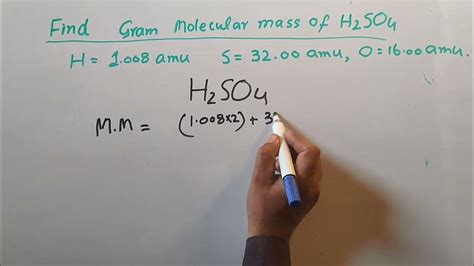 Find Gram Molecular mass of H₂SO₄
H = 1.008 amu S = 32.00 amu, O = 16.00 amu.
H₂SO₄
M.M = (1.008×2) + 3